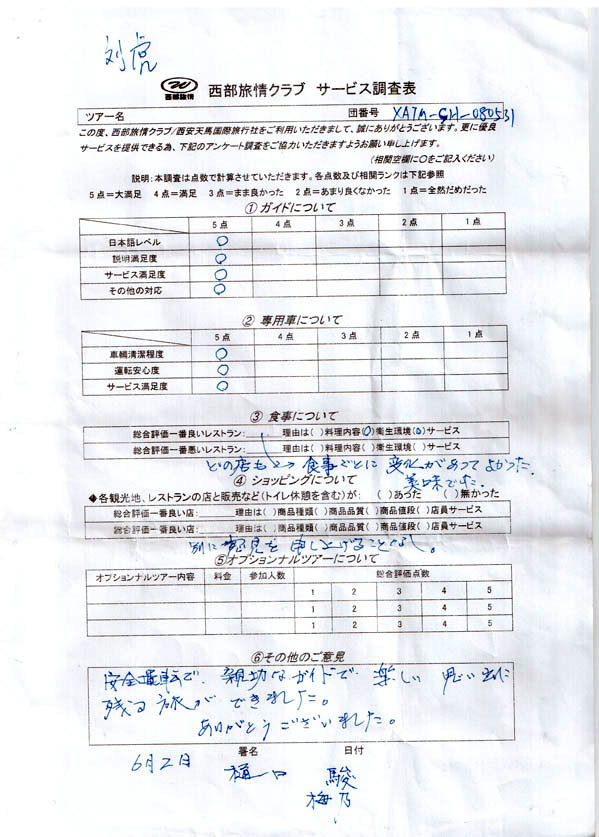 刘虎
西部旅情
西部旅情クラブ サービス調査表
ツアー名 団番号 XATM-GH-080531
この度、西部旅情クラブ/西安天馬国際旅行社をご利用いただきまして、誠にありがとうございます。更に優良
サービスを提供できる為、下記のアンケート調査をご協力いただきますようお願い申し上げます。
(相関空欄に〇をご記入ください)
説明:本調査は点数で計算させていただきます。各点数及び相関ランクは下記参照
5点=大満足 4点=満足 3点=まま良かった 2点=あまり良くなかった 1点=全然だめだった
①ガイドについて
5点 4点 3点 2点 1点
日本語レベル 〇
説明満足度 〇
サービス満足度 〇
その他の対応 〇
② 専用車について
5点 4点 3点 2点 1点
車輌清潔程度 〇
運転安心度 〇
サービス満足度 〇
③ 食事について
総合評価一番良いレストラン: 理由は( )料理内容(〇)衛生環境(〇)サービス
総合評価一番悪いレストラン: 理由は( )料理内容( )衛生環境( )サービス
どの店も→ 食事ごとに 変化があってよかった.
美味でした.
④ ショッピングについて
◆各観光地、レストランの店と販売など(トイレ休憩を含む)が: ( )あった ( )無かった
総合評価一番良い店: 理由は( )商品種類( )商品品質( )商品値段( )店員サービス
総合評価一番悪い店: 理由は( )商品種類( )商品品質( )商品値段( )店員サービス
別に 意見を 申し上げることなし。
⑤オプションナルツアーについて
オプションナルツアー内容 料金 参加人数 総合評価点数
1 2 3 4 5
1 2 3 4 5
1 2 3 4 5
⑥その他のご意見
安全運転で、親切なガイドで 楽しい 思い出に
残る旅ができました。
ありがとうございました。
署名 日付
6月2日 樋口 駿
梅乃